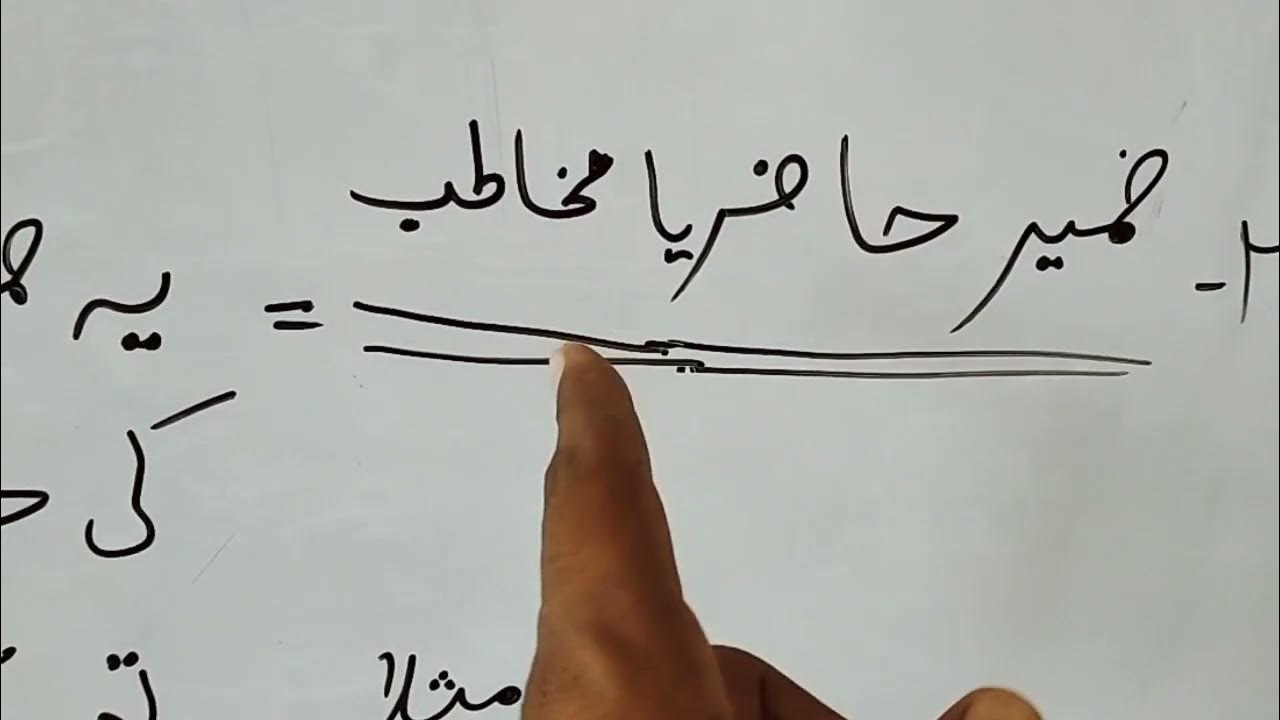 ۲- ضمیر حاضر یا مخاطب = یہ
کی
مثلاً